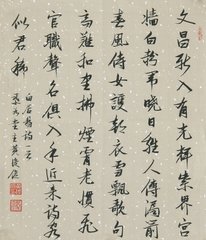 文昌新入有光輝紫界宮
牆白粉闈曉日雞人傳漏箭
春風侍女護朝衣雪飄歌句
高難和鶴拂煙霄老慣飛
官職聲名俱入手近來詩客
似君稀
白居易詩一首